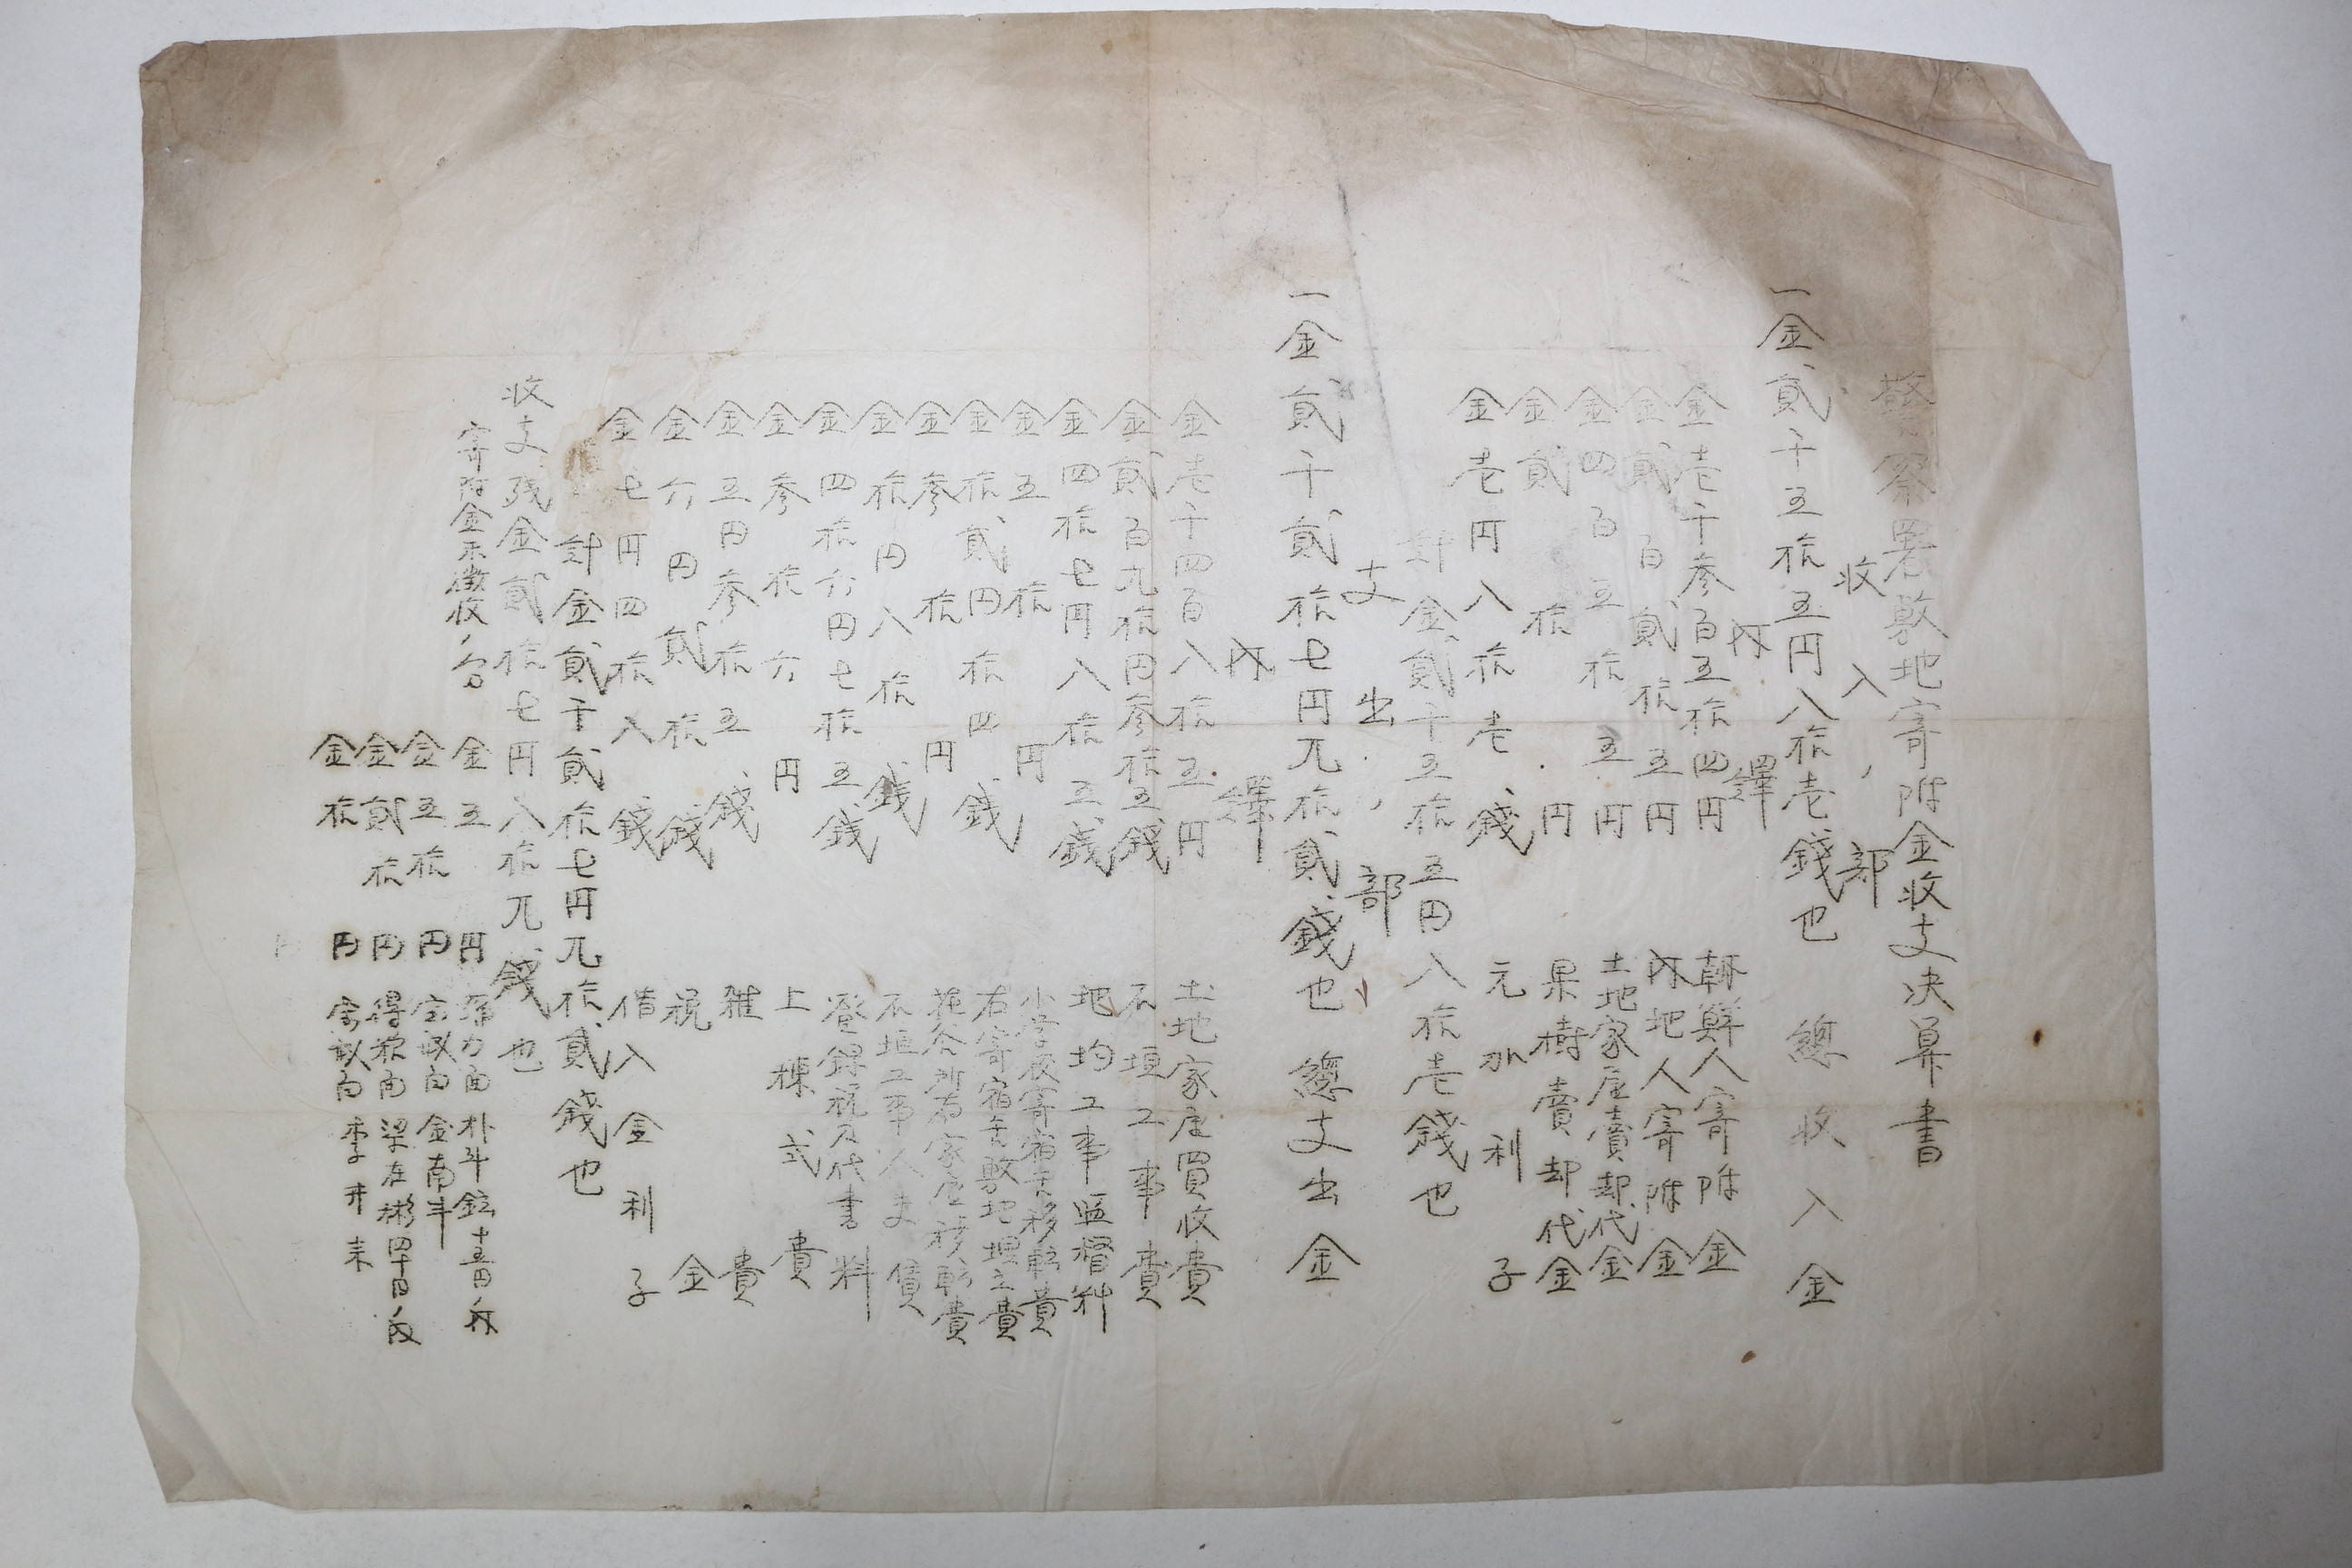 警察署敷地寄附金收支決算書
收入ノ部
一金貳千五拾五円八拾壱錢也 總收入金
內譯
金壱千参百五拾四円 朝鮮人寄附金
金貳百貳拾五円 內地人寄附金
金四百五拾五円 土地家屋賣却代金
金貳拾円 果樹賣却代金
金壱円八拾壱錢 元加利子
計金貳千五拾五円八拾壱錢也
支出ノ部
一金貳千貳拾七円九拾貳錢也 總支出金
內譯
金壱千四百八拾五円 土地家屋買收費
金貳百九拾円参拾五錢 石垣工事費
金四拾七円八拾五錢 地均工事監督料
金五拾円 小学校寄宿舍移転費
金拾貳円拾四錢 右寄宿舍敷地埋立費
金参拾円 所有家屋移転費
金拾円八拾錢 石垣工事人夫賃
金四拾六円七拾五錢 登録税及代書料
金参拾六円 上棟式費
金五円参拾五錢 雑費
金六円貳拾錢 税金
金七円四拾八錢 借入金利子
計金貳千貳拾七円九拾貳錢也
收支残金貳拾七円八拾九錢也
寄附金未徵收ノ分
金五円 面 朴斗鉉 十五円ノ內
金五拾円 面 金南斗
金貳拾円 得粮面 梁在彬 四十円ノ內
金拾円 面 李井来
円